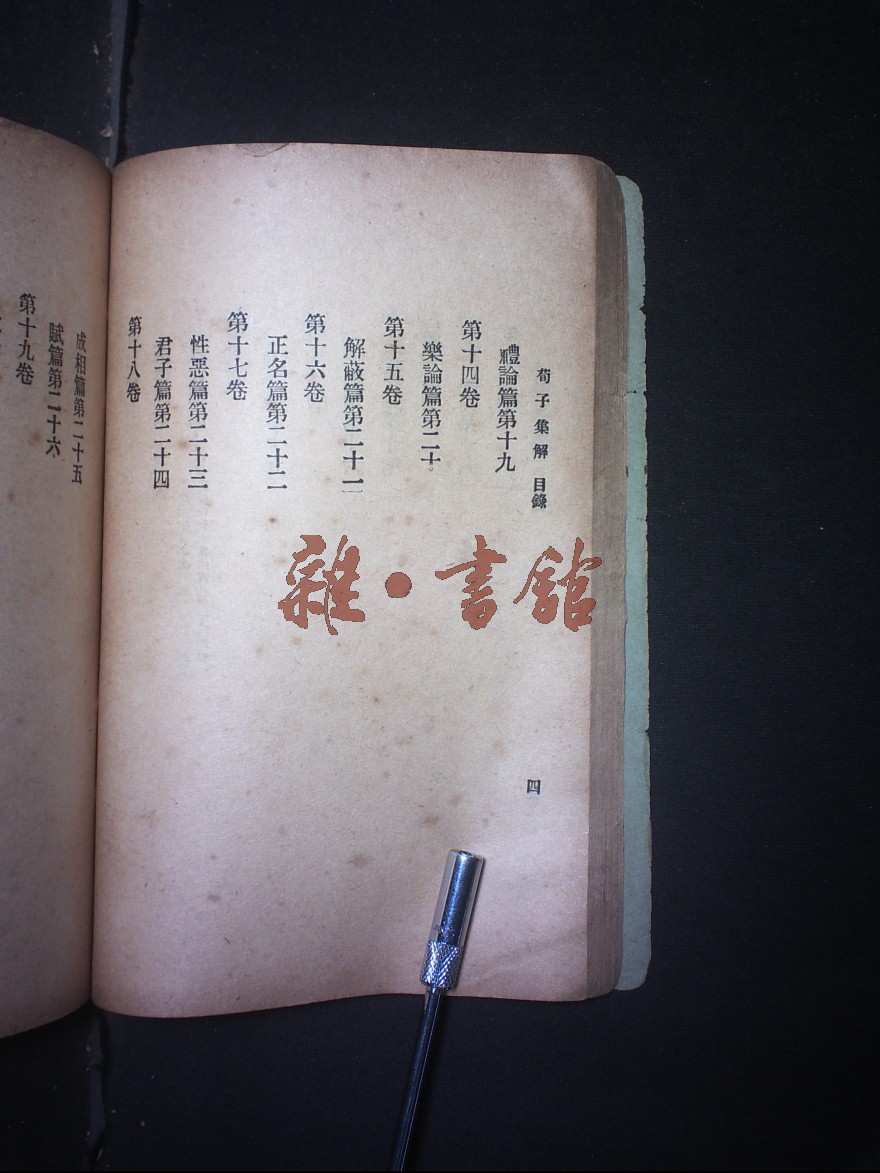 荀子集解 目錄
禮論篇第十九
第十四卷
樂論篇第二十。
第十五卷
解蔽篇第二十一
第十六卷
正名篇第二十二
第十七卷
性惡篇第二十三
君子篇第二十四
第十八卷
四
成相篇第二十五
賦篇第二十六
第十九卷
雜·書館